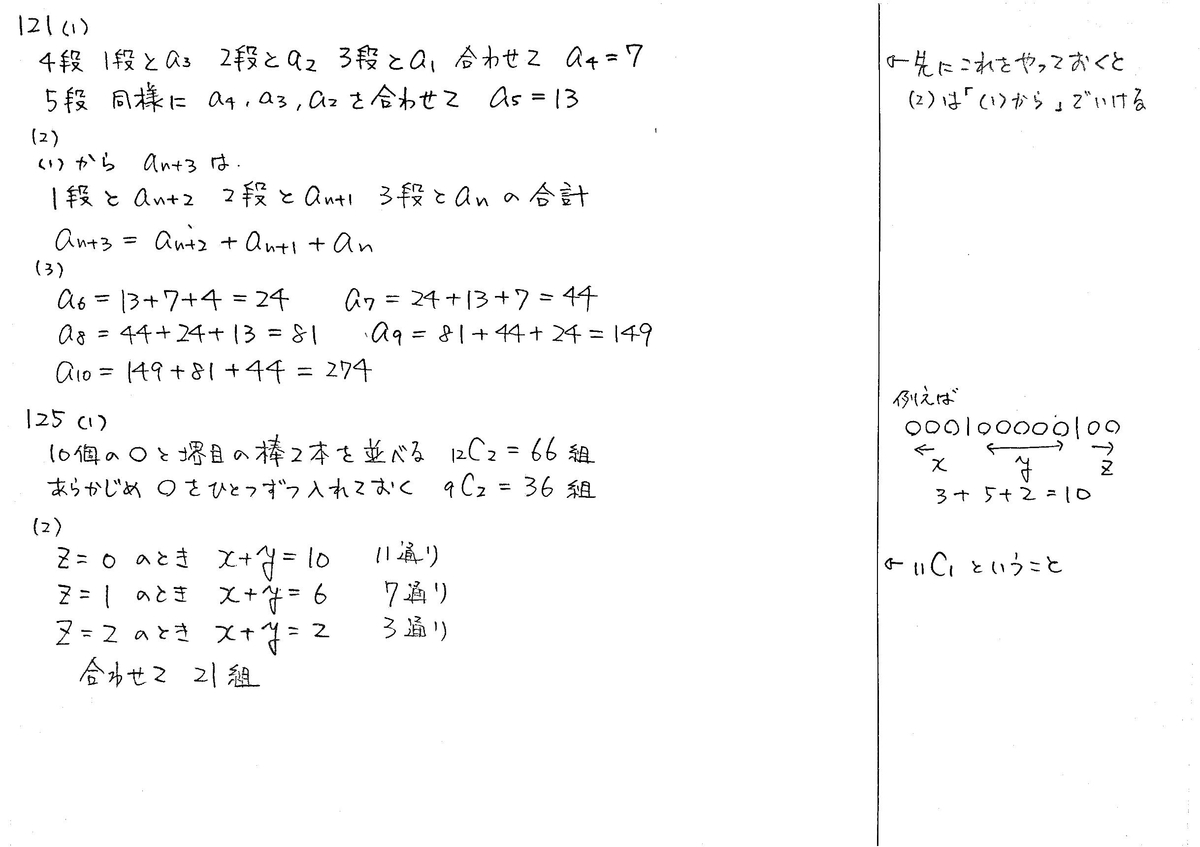 121 (1)
4段 1段とa₃ 2段とa₂ 3段とa₁ 合わせて a₄=7
5段 同様に a₄,a₃,a₂を合わせて a₅=13
(2)
(1)から aₙ₊₃は
1段とaₙ₊₂ 2段とaₙ₊₁ 3段とaₙの合計
aₙ₊₃ = aₙ₊₂ + aₙ₊₁ + aₙ
(3)
a₆ = 13+7+4 = 24 a₇ = 24+13+7 = 44
a₈ = 44+24+13 = 81 a₉ = 81+44+24 = 149
a₁₀ = 149+81+44 = 274
125 (1)
10個の○と堺目の棒2本を並べる ₁₂C₂ = 66 組
あらかじめ ○をひとつずつ入れておく ₉C₂ = 36 組
(2)
z = 0 のとき x+y = 10 11通り
z = 1 のとき x+y = 6 7通り
z = 2 のとき x+y = 2 3通り
合わせて 21組
←先にこれをやっておくと
(2)は「(1)から」でいける
例えば
○○○|○○○○○|○○
x y z
3+ 5+2 = 10
← ₁₁C₁ ということ